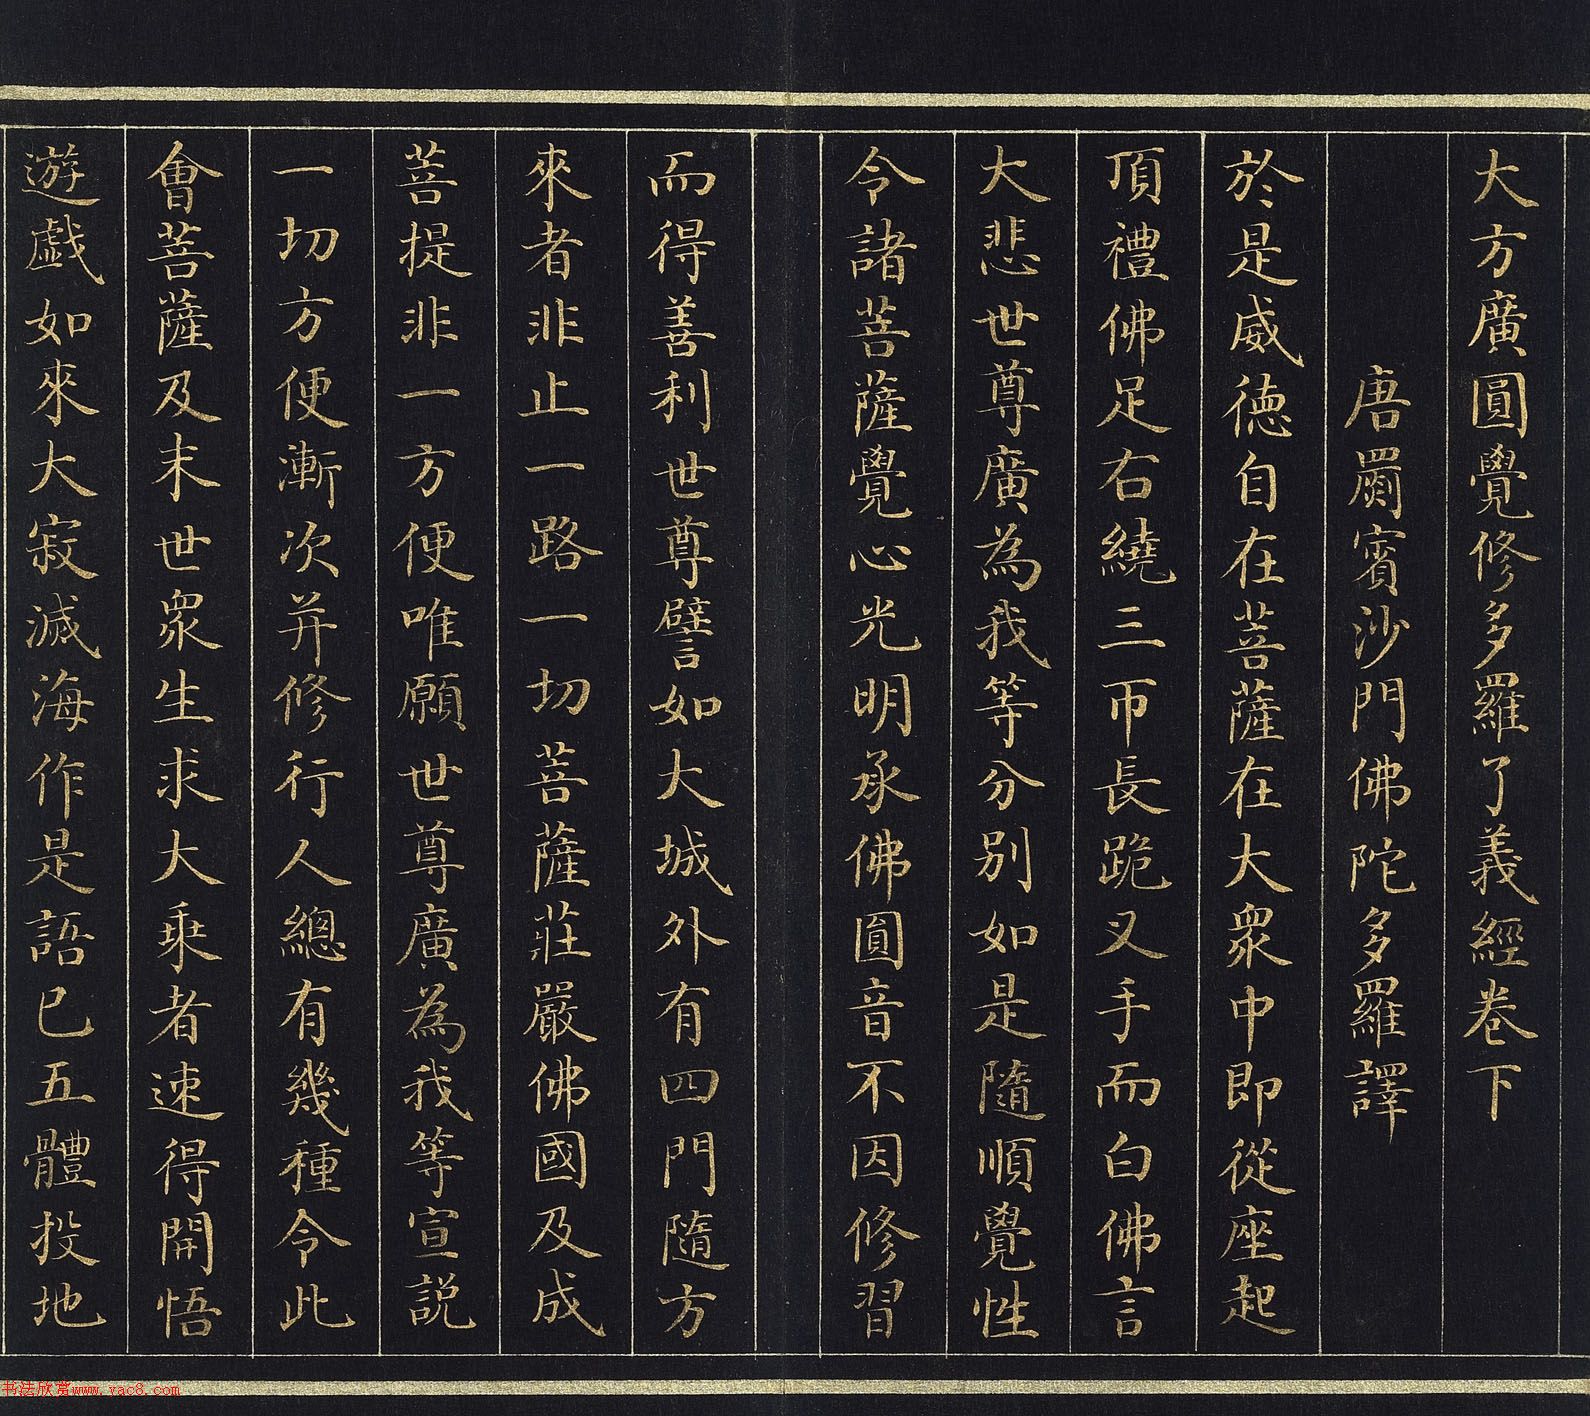 大方廣圓覺修多羅了義經卷下
唐罽賓沙門佛陀多羅譯
於是威德自在菩薩在大衆中即從座起
頂禮佛足右繞三帀長跪叉手而白佛言
大悲世尊廣為我等分別如是隨順覺性
令諸菩薩覺心光明承佛圓音不因修習
而得善利世尊譬如大城外有四門隨方
來者非止一路一切菩薩莊嚴佛國及成
菩提非一方便唯願世尊廣為我等宣説
一切方便漸次并修行人總有幾種令此
會菩薩及末世衆生求大乘者速得開悟
遊戲如來大寂滅海作是語已五體投地
书法欣赏www.yac8.com